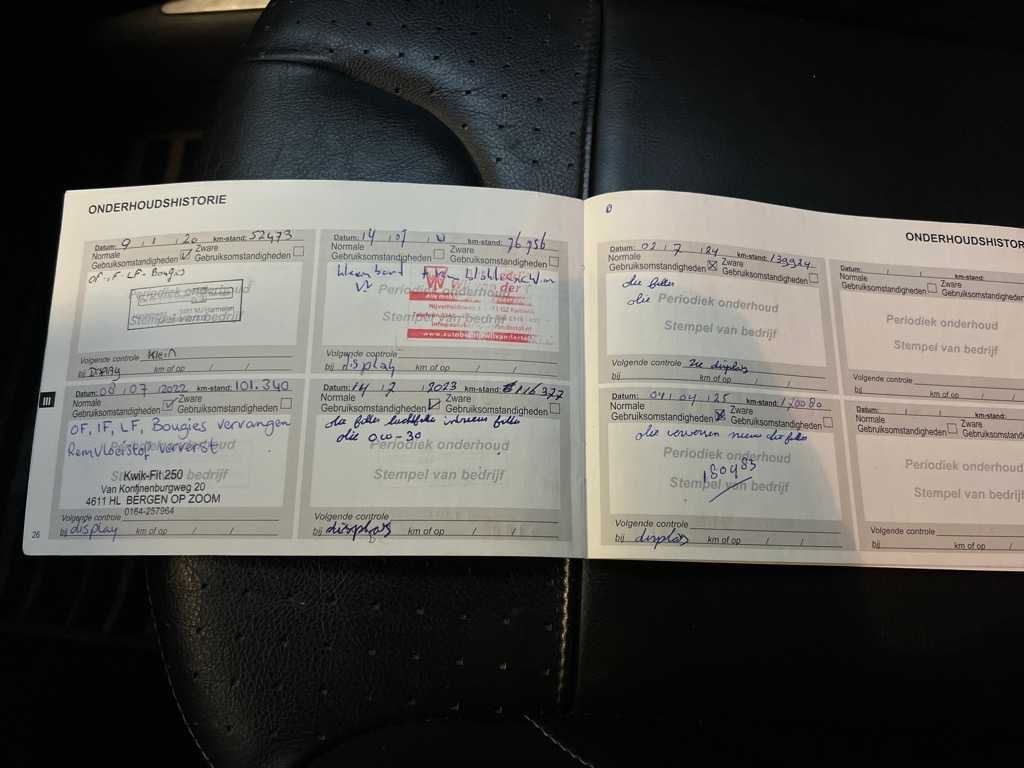 ONDERHOUDSHISTORIE
Datum: 9 / 1 / 20 km-stand: 52473
Normale Gebruiksomstandigheden Zware Gebruiksomstandigheden
OF. F. LF. Bougies
Periodiek onderhoud
Stempel van bedrijf
Volgende controle Klein
bij km of op / /
Datum: 14 / 07 / km-stand: 76756
Normale Gebruiksomstandigheden Zware Gebruiksomstandigheden
Periodiek onderhoud
Stempel van bedrijf
Volgende controle
bij display km of op / /
Datum: 08 / 07 / 2022 km-stand: 101.340
Normale Gebruiksomstandigheden Zware Gebruiksomstandigheden
OF, IF, LF, Bougies vervangen
Remvloeistof ververst
Periodiek onderhoud
Stempel van bedrijf
Kwik-Fit 250
Van Konijnenburgweg 20
4611 HL BERGEN OP ZOOM
0164-257964
Volgende controle
bij display km of op / /
26
III
Datum: 14 / 2 / 2023 km-stand: 116377
Normale Gebruiksomstandigheden Zware Gebruiksomstandigheden
olie filter luchtfilter interieur filter
olie 0W-30
Periodiek onderhoud
Stempel van bedrijf
Volgende controle
bij display km of op / /
ONDERHOUDSHISTOR
Datum: 02 / 7 / 24 km-stand: 139924
Normale Gebruiksomstandigheden Zware Gebruiksomstandigheden
olie filter
olie
Periodiek onderhoud
Stempel van bedrijf
Volgende controle Zie display
bij km of op / /
Datum: / / km-stand:
Normale Gebruiksomstandigheden Zware Gebruiksomstandigheden
Periodiek onderhoud
Stempel van bedrijf
Volgende controle
bij km of op / /
Datum: 01 / 04 / 25 km-stand: 170080
Normale Gebruiksomstandigheden Zware Gebruiksomstandigheden
olie verversen nieuw oliefilter
Periodiek onderhoud
180983
Stempel van bedrijf
Volgende controle
bij display km of op / /
Datum: / / km-stand:
Normale Gebruiksomstandigheden Zware Gebruiksomstandigheden
Periodiek onderhoud
Stempel van bedrijf
Volgende controle
bij km of op / /